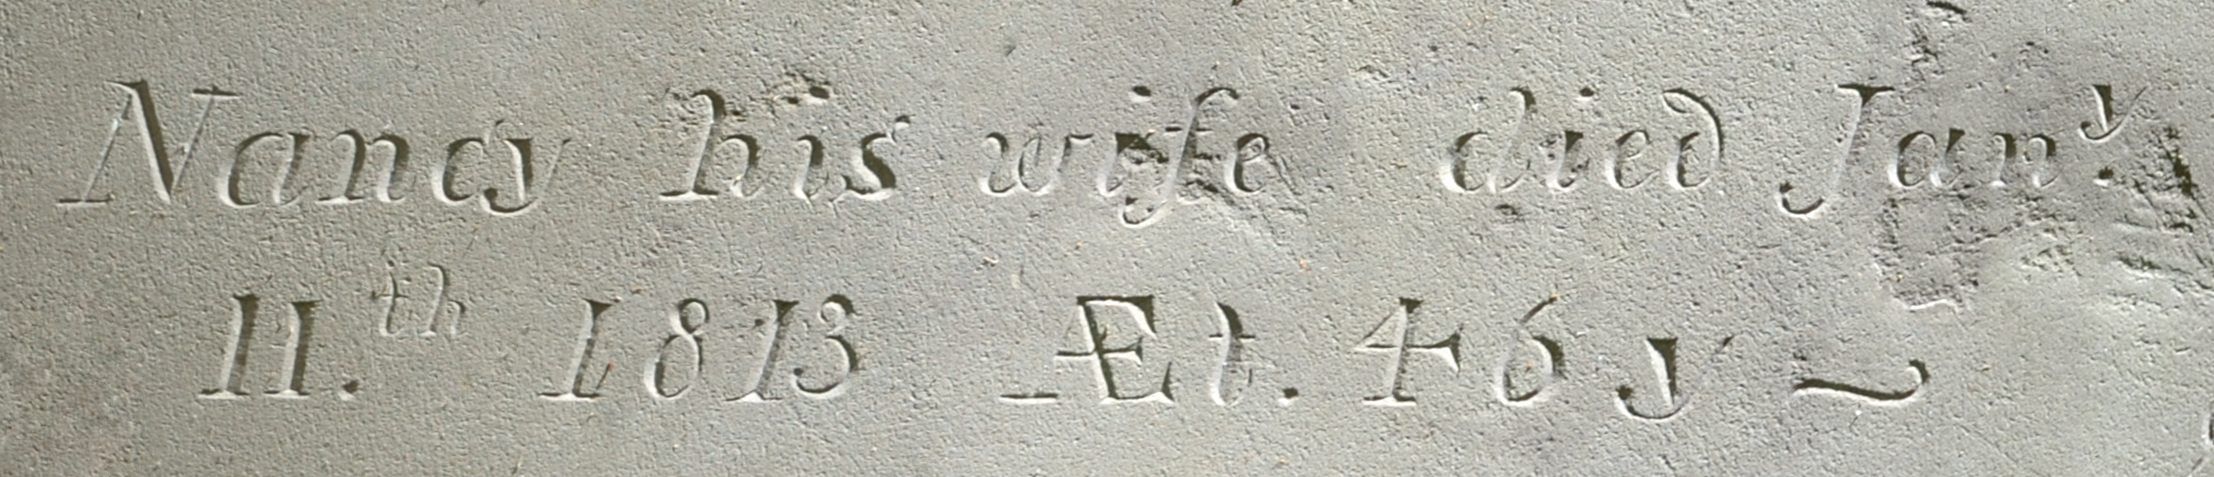 Nancy his wife died Jan.y
11.th 1813 Æt. 46 y ~